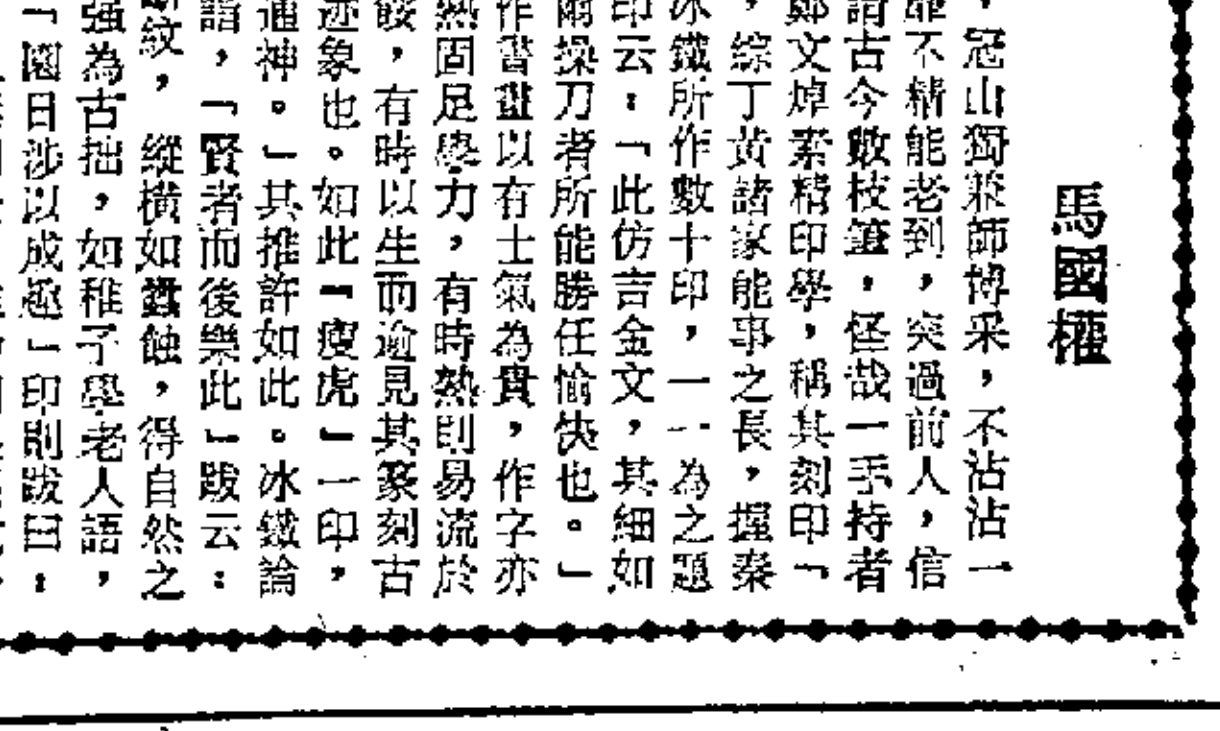 馬國權
，冠山獨兼師博采，不沾沾一
靡不精能老到，突過前人，信
謂古今數枝筆，怪哉一手持者
鄭文焯素精印學，稱其刻印「
，綜丁黃諸家能事之長，握秦
冰鐵所作數十印，一一為之題
印云：「此仿吉金文，其細如
爾操刀者所能勝任愉快也。」
作書畫以有士氣為貴，作字亦
熱固足學力，有時熱則易流於
，有時以生而逾見其篆刻古
迹象也。如此「瘦虎」一印，
通神。」其推許如此。冰鐵論
語，「賢者而後樂此」跋云：
斷紋，縱橫如蠹蝕，得自然之
强為古拙，如稚子學老人語，
「園日涉以成趣」印則跋曰：